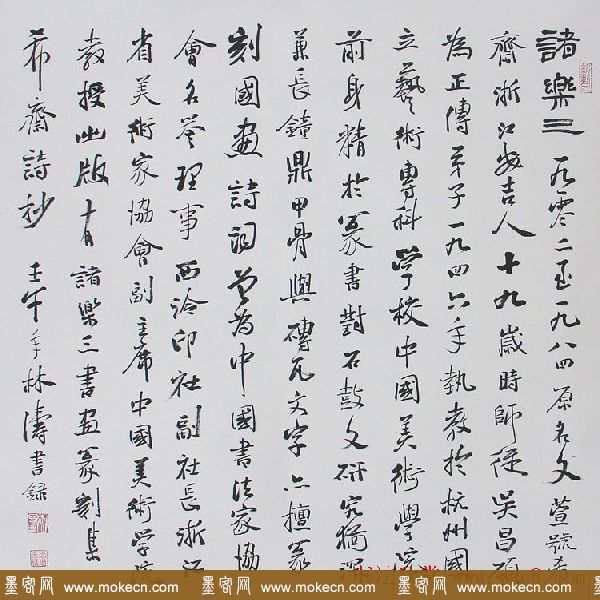 諸樂三 一九零二至一九八四原名文萱號希
齋浙江安吉人十九歲時師從吳昌碩
為正傳弟子一九四六年執教於杭州國
立藝術專科學校中國美術學院
前身精於篆書對石鼓文研究獨深
兼長鐘鼎甲骨與磚瓦文字亦擅篆
刻國畫詩詞曾為中國書法家協
會名譽理事西泠印社副社長浙江
省美術家協會副主席中國美術學院
教授出版有諸樂三書畫篆刻集
希齋詩抄 壬午年林濤書錄
墨客网 www.mokecn.com 墨客网 www.mokecn.com 墨客网 www.mokecn.com